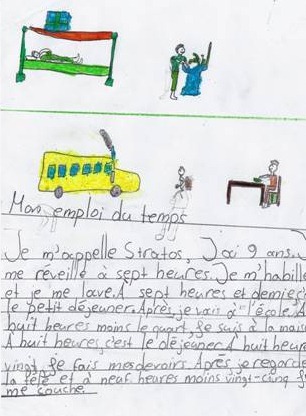 Mon emploi du temps
Je m'appelle Stratos, J'ai 9 ans.
me réveille à sept heures. Je m'habill
et je me lave. A sept heures et demie
le petit déjeuner. Après, je vais à l'école. A
huit heures moins le quart, je suis à la mais
A huit heures, c'est le déjeuner. A huit heure
vingt, je fais mes devoirs. Après je regarde
la télé et à neuf heures moins vingt-cinq
me couche